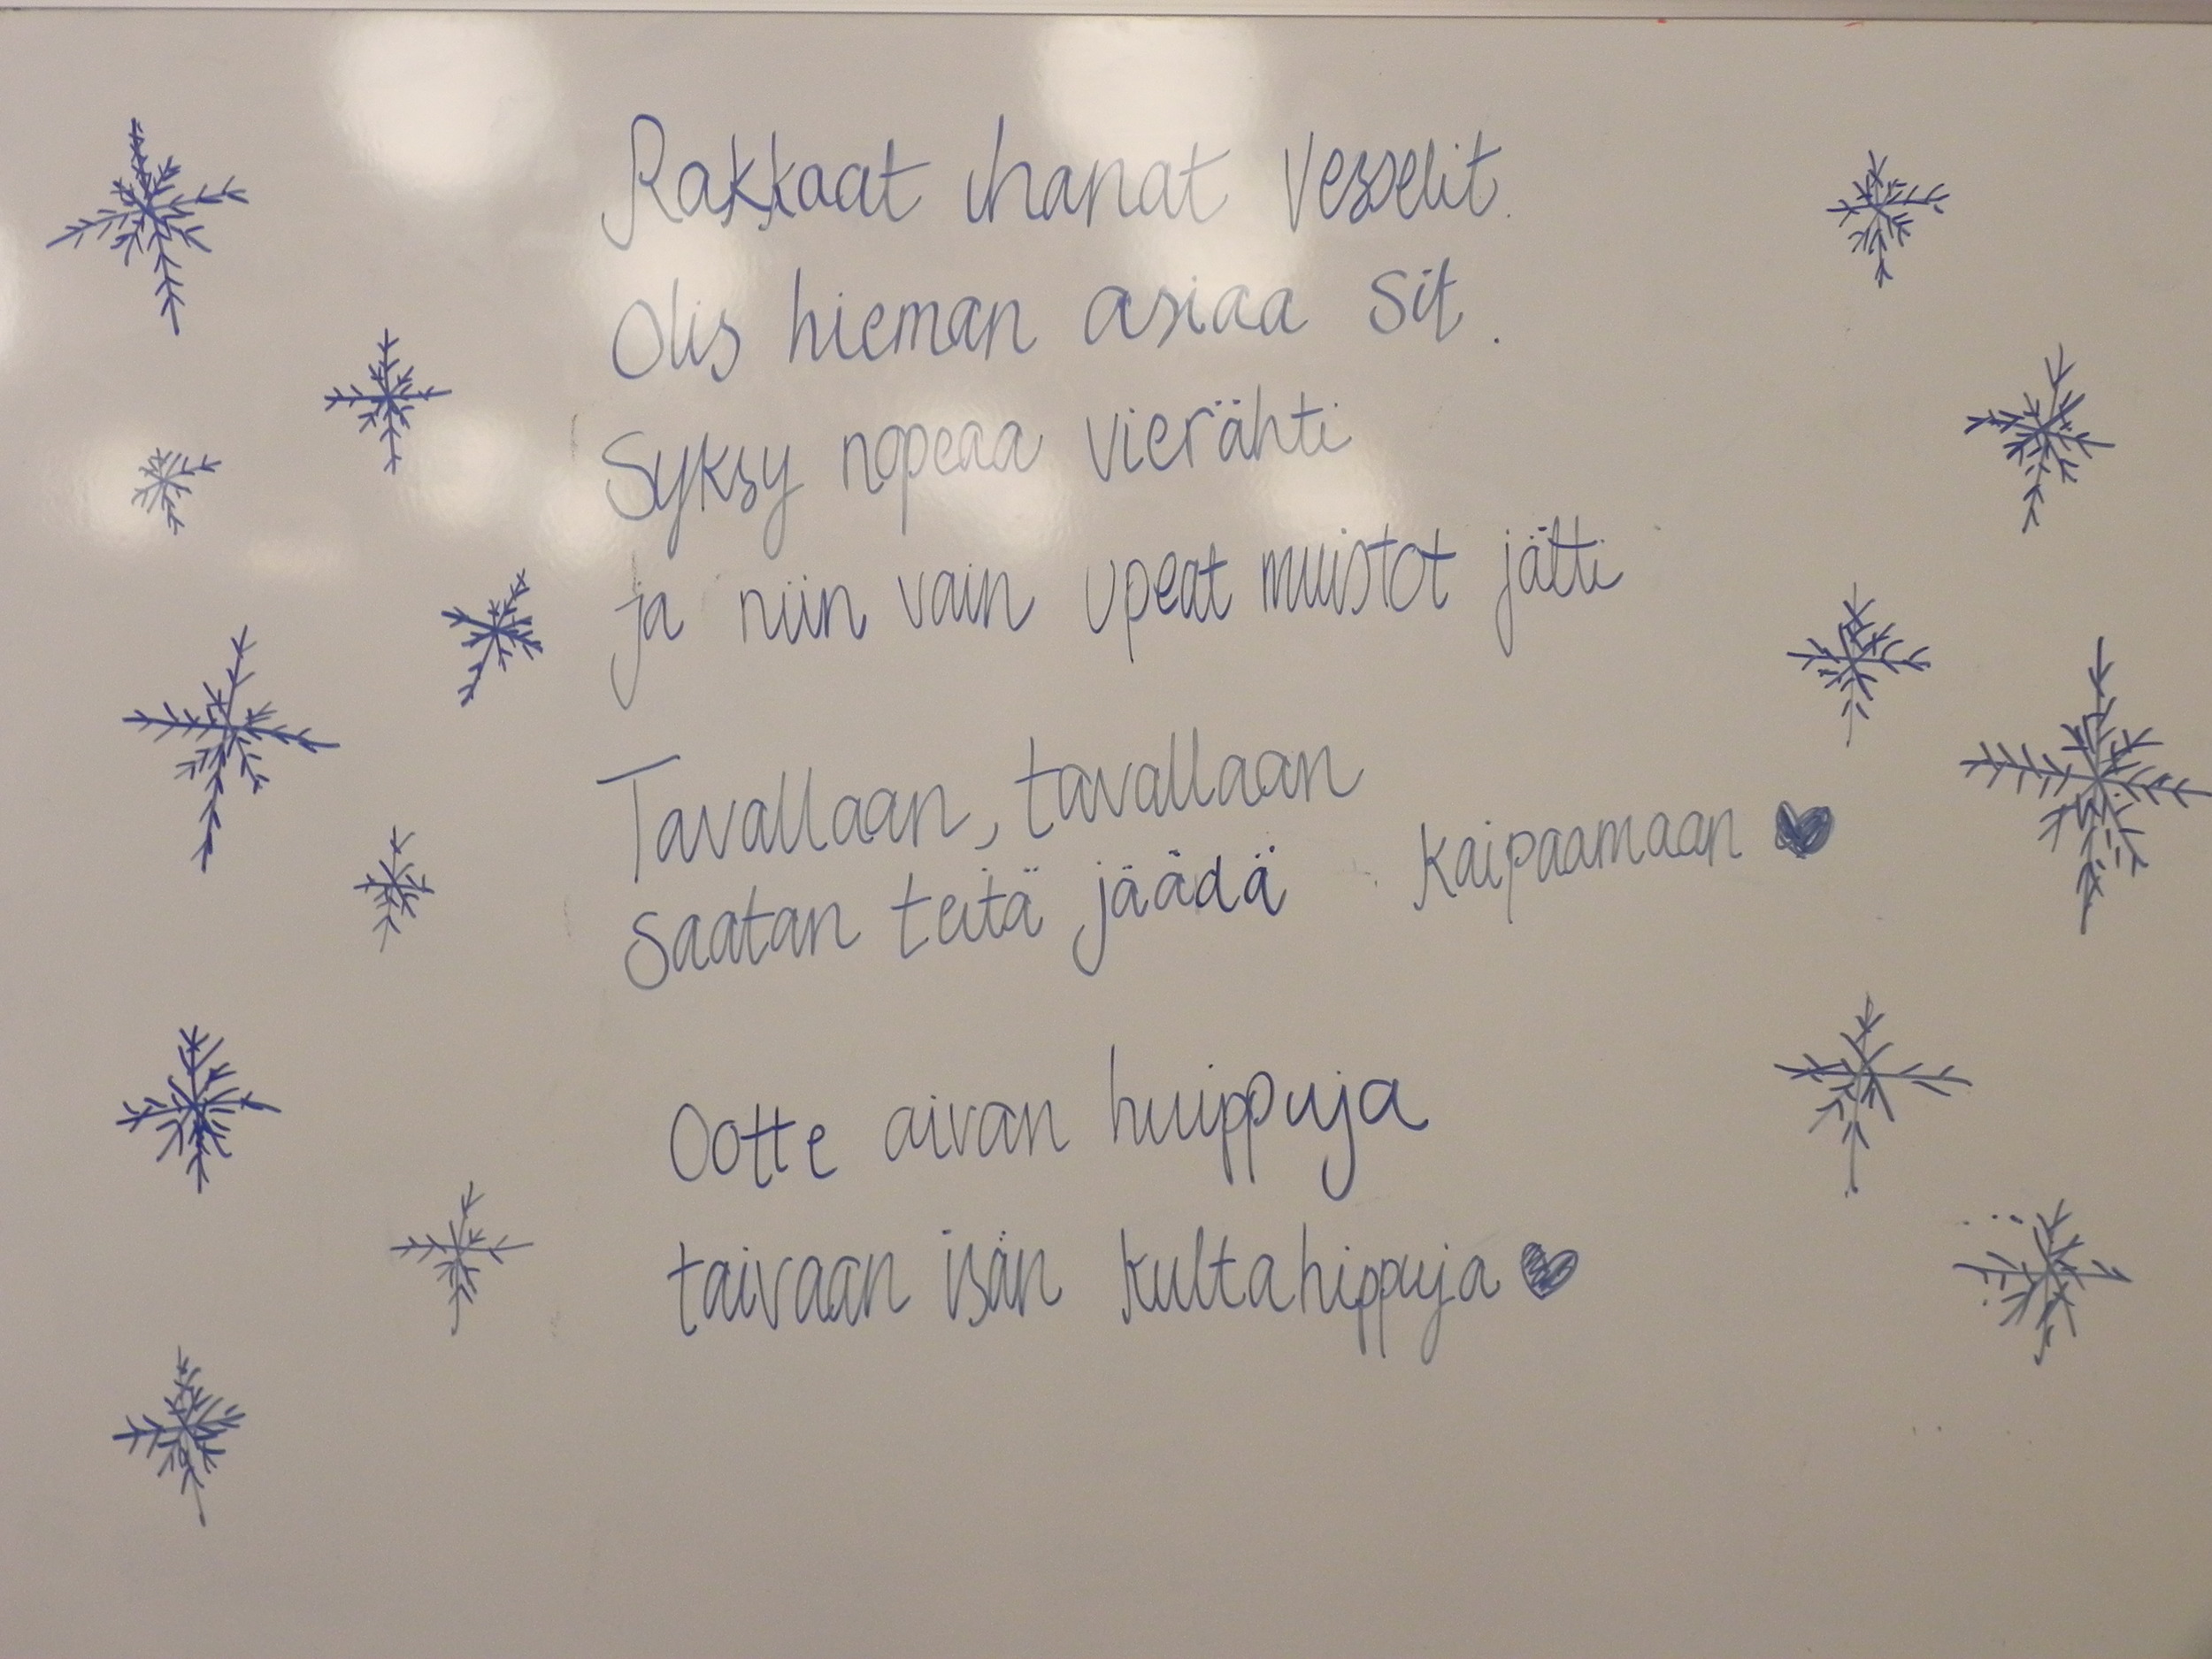 Rakkaat ihanat Vesselit.
Olis hieman asiaa sit.
Syksy nopeaa vierähti
ja niin vain upeat muistot jätti
Tavallaan, tavallaan
saatan teitä jäädä kaipaamaan
Ootte aivan huippuja
taivaan isän kultahippuja